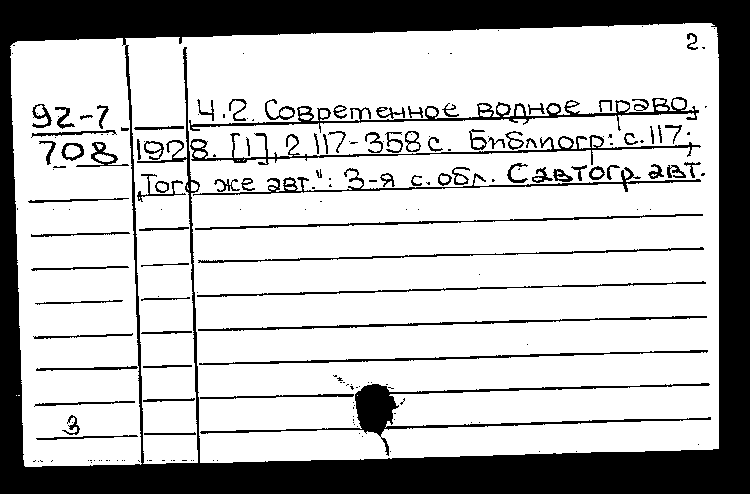 2.
92-7 Ч.2. Современное водное право.
708 1928. [1], 2, 117-358 с. Библиогр: с.117;
„Того же авт.": 3-я с. обл. С автогр. авт.
3